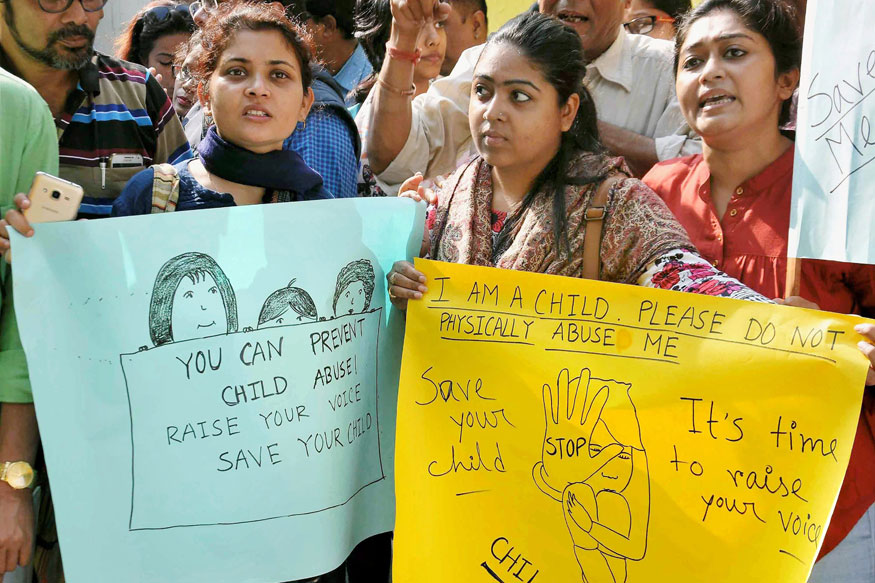 YOU CAN PREVENT
CHILD ABUSE!
RAISE YOUR VOICE
SAVE YOUR CHILD
I AM A CHILD. PLEASE DO NOT
PHYSICALLY ABUSE ME
Save
your
child
STOP
It's time
to raise
your voice
CHI
Save
Me